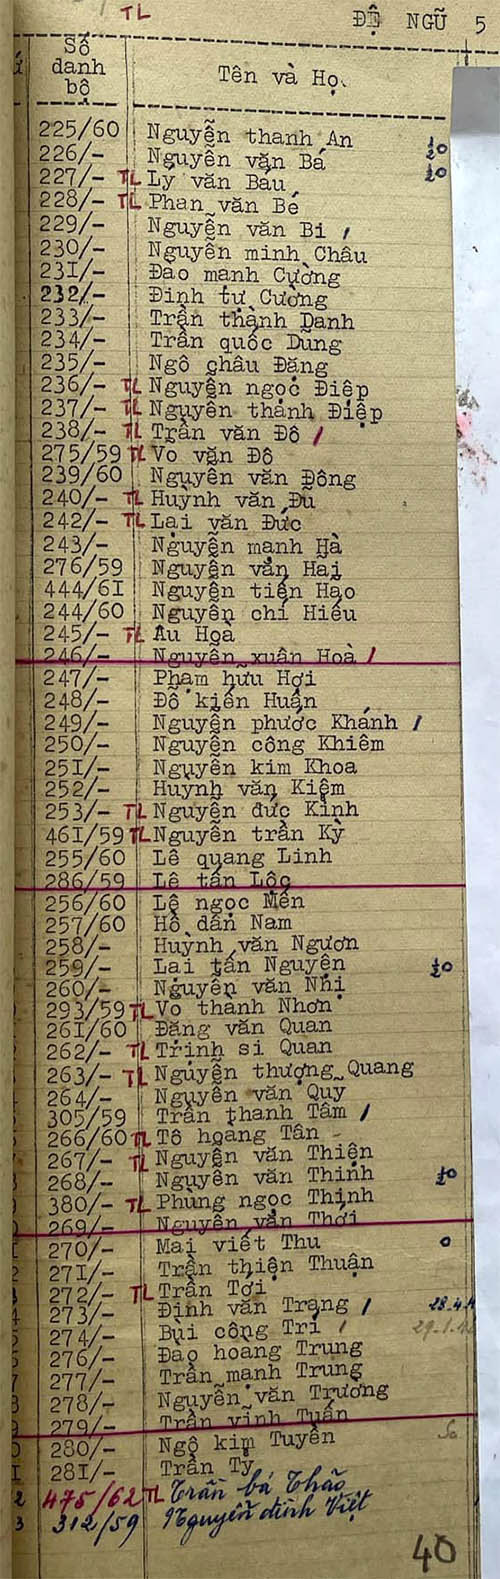 TL ĐỆ NGŨ 5
Số
danh
bộ
Tên và Họ
225/60 Nguyễn thanh An
226/- Nguyễn văn Bá ½0
227/- TL Lý văn Báu ½0
228/- TL Phan văn Bé
229/- Nguyễn văn Bi /
230/- Nguyễn minh Châu
231/- Đao mạnh Cường
232/- Đinh tự Cường
233/- Trần thành Danh
234/- Trần quốc Dũng
235/- Ngô châu Đăng
236/- TL Nguyễn ngọc Điệp
237/- TL Nguyễn thành Điệp
238/- TL Trần văn Đô /
275/59 TL Vo văn Đô
239/60 Nguyễn văn Đông
240/- TL Huỳnh văn Đủ
242/- TL Lại văn Đức
243/- Nguyễn mạnh Hà
276/59 Nguyễn văn Hai
444/61 Nguyễn tiến Hạo
244/60 Nguyễn chí Hiếu
245/- TL Âu Hoà
246/- Nguyễn xuân Hoà /
247/- Phạm hữu Hợi
248/- Đỗ kiến Huấn
249/- Nguyễn phước Khánh /
250/- Nguyễn công Khiêm
251/- Nguyễn kim Khoa
252/- Huỳnh văn Kiệm
253/- TL Nguyễn đức Kỉnh
461/59 TL Nguyễn trần Kỳ
255/60 Lê quang Linh
286/59 Lê tấn Lộc
256/60 Lê ngọc Mến
257/60 Hồ dân Nam
258/- Huỳnh văn Ngươn
259/- Lai tấn Nguyện ½0
260/- Nguyễn văn Nhị
293/59 TL Vo thành Nhơn
261/60 Đặng văn Quan
262/- TL Trịnh si Quan
263/- TL Nguyễn thượng Quang
264/- Nguyễn văn Quy
305/59 Trần thanh Tâm /
266/60 TL Tô hoàng Tân
267/- TL Nguyễn văn Thiện
268/- Nguyễn văn Thinh ½0
380/- TL Phùng ngọc Thịnh
269/- Nguyễn văn Thới
270/- Mai viết Thu o
271/- Trần thiện Thuận
272/- TL Trần Tới
273/- Đinh văn Trang / 28.4
274/- Bùi công Trí / 29.1
276/- Đao hoang Trung
277/- Trần mạnh Trung
278/- Nguyễn văn Trương
279/- Trần vĩnh Tuấn
280/- Ngô kim Tuyền
281/- Trần Tỷ
2 475/62 TL Trần bá Thảo
3 312/59 Nguyễn đình Việt
40